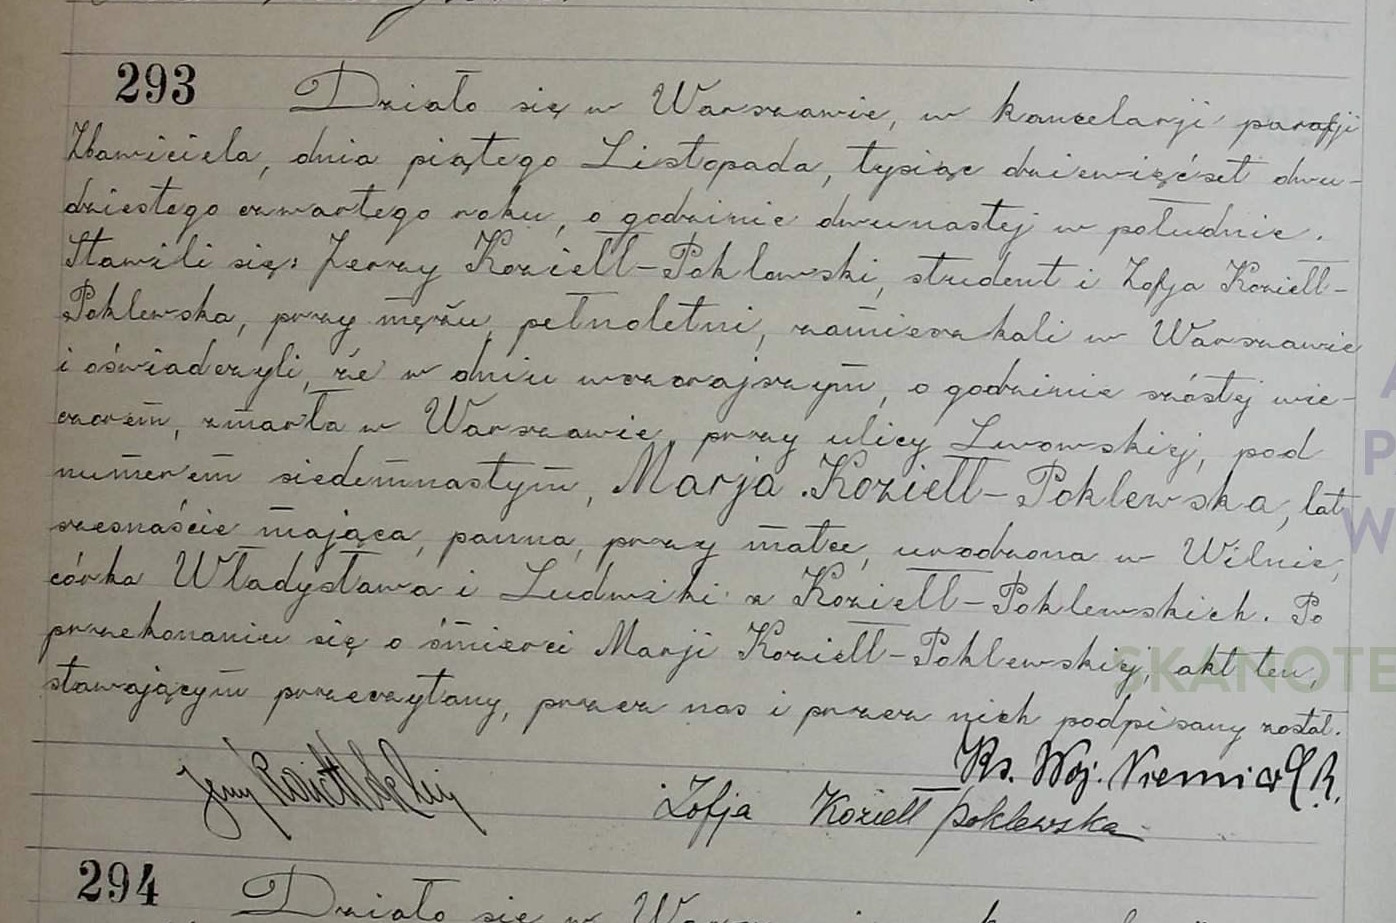 293 Działo się w Warszawie, w kancelarji parafji
Zbawiciela, dnia piątego Listopada, tysiąc dziewięćset dwu-
dziestego czwartego roku, o godzinie dwunastej w południe.
Stawili się: Jerzy Koziełł-Poklewski, student i Zofja Koziełł-
Poklewska, przy mężu, pełnoletni, zamieszkali w Warszawie
i oświadczyli, że w dniu wczorajszym, o godzinie szóstej wie-
czorem, zmarła w Warszawie, przy ulicy Lwowskiej, pod
numerem siedemnastym, Marja Koziełł-Poklewska, lat
szesnaście mająca, panna, przy matce, urodzona w Wilnie,
córka Władysława i Ludwiki z Koziełł-Poklewskich. Po
przekonaniu się o śmierci Marji Koziełł-Poklewskiej, akt ten,
stawającym przeczytany, przez nas i przez nich podpisany został.
Ks. Woj.
Jerzy Koziełł Poklewski
Zofja Koziełł Poklewska
294 Działo się w
SKANOTE
A
P
W